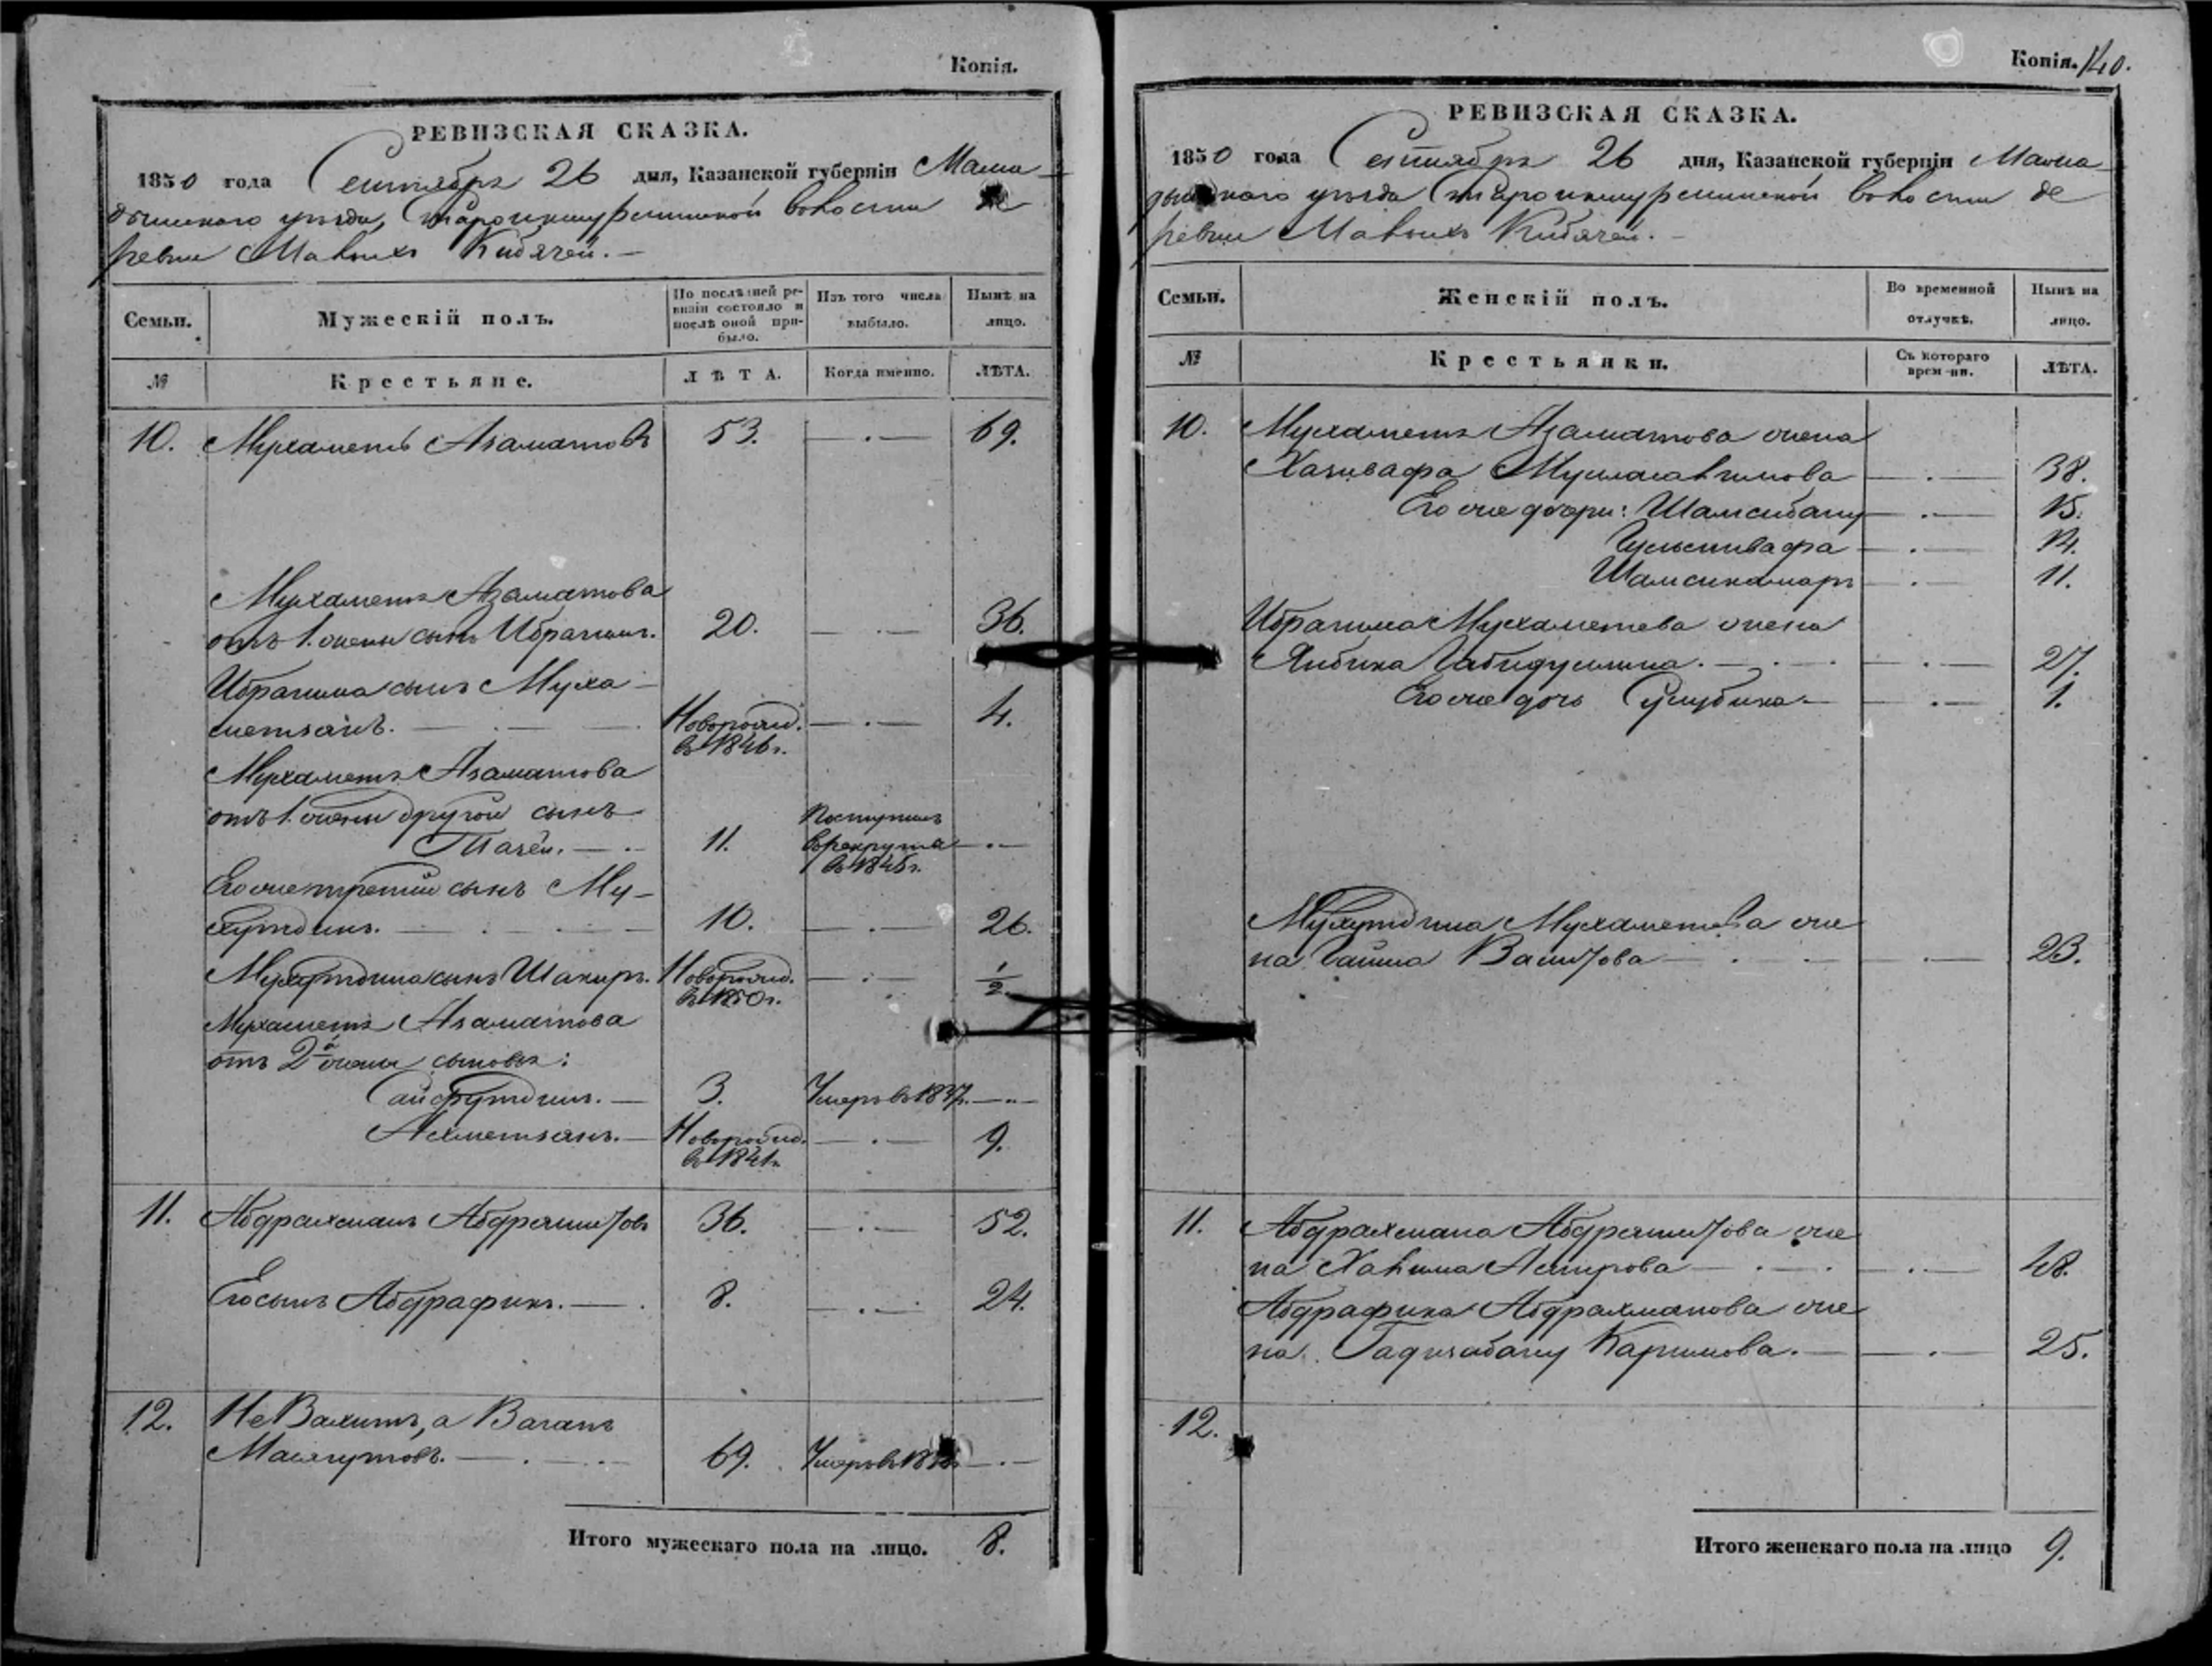 Копія.
РЕВИЗСКАЯ СКАЗКА.
1850 года Сентября 26 дня, Казанской губерніи Мама-
дышскаго уѣзда, Староикшурминской волости де
ревни Малыхъ Кибячей. —
Семьи.
Мужескій полъ.
По послѣдней ре-
визіи состояло и
послѣ оной при-
было.
Изъ того числа
выбыло.
Нынѣ на
лицо.
№
Крестьяне.
ЛѢТА.
Когда именно.
ЛѢТА.
10. Мухаметъ Азаматовъ 53. — . — 69.
Мухаметя Азаматова
отъ 1. жены сынъ Ибрагимъ. 20. — . — 36.
Ибрагима сынъ Муха-
метзянъ. — . — Новорожд. — . — 4.
въ 1846 г.
Мухаметя Азаматова
отъ 1. жены другой сынъ Поступилъ
Тазей. — . 11. въ рекрута — . —
въ 1845 г.
Его же третій сынъ Му-
хутдинъ. — . — 10. — . — 26.
Мухутдина сынъ Шакиръ. Новорожд. — . — 1/2.
въ 1850 г.
Мухаметя Азаматова
отъ 2й жены сыновья:
Сайфутдинъ. — 3. Умеръ въ 1837. — . —
Ахметзянъ. — Новорожд. — . — 9.
въ 1841 г.
11. Абдрахманъ Абдряшитовъ 36. — . — 52.
Его сынъ Абдрафикъ. — . 8. — . — 24.
12. Не Вахитъ, а Вагапъ
Масягутовъ. — . — 69. Умеръ въ — . —
Итого мужескаго пола на лицо. 8.
Копія. 140.
РЕВИЗСКАЯ СКАЗКА.
1850 года Сентября 26 дня, Казанской губерніи Мама
дышскаго уѣзда Староикшурминской волости де
ревни Малыхъ Кибячей. —
Семьи.
Женскій полъ.
Во временной
отлучкѣ.
Нынѣ на
лицо.
№
Крестьянки.
Съ котораго
времени.
ЛѢТА.
10. Мухаметя Азаматова жена
Хазивафа — . — 38.
Его же дочери: Шамсибану — . — 15.
Гульсивафа — . — 14.
Шамсикамаръ — . — 11.
Ибрагима Мухаметева жена
Янбика Габидуллина. — . — 27.
Его же дочь — . — 1.
Мухутдина Мухаметева же
на Гайша Вашитова — . — 23.
11. Абдрахмана Абдряшитова же
на Халима Амирова — . — 48.
Абдрафика Абдрахманова же
на Каримова. — . — 25.
12.
Итого женскаго пола на лицо 9.